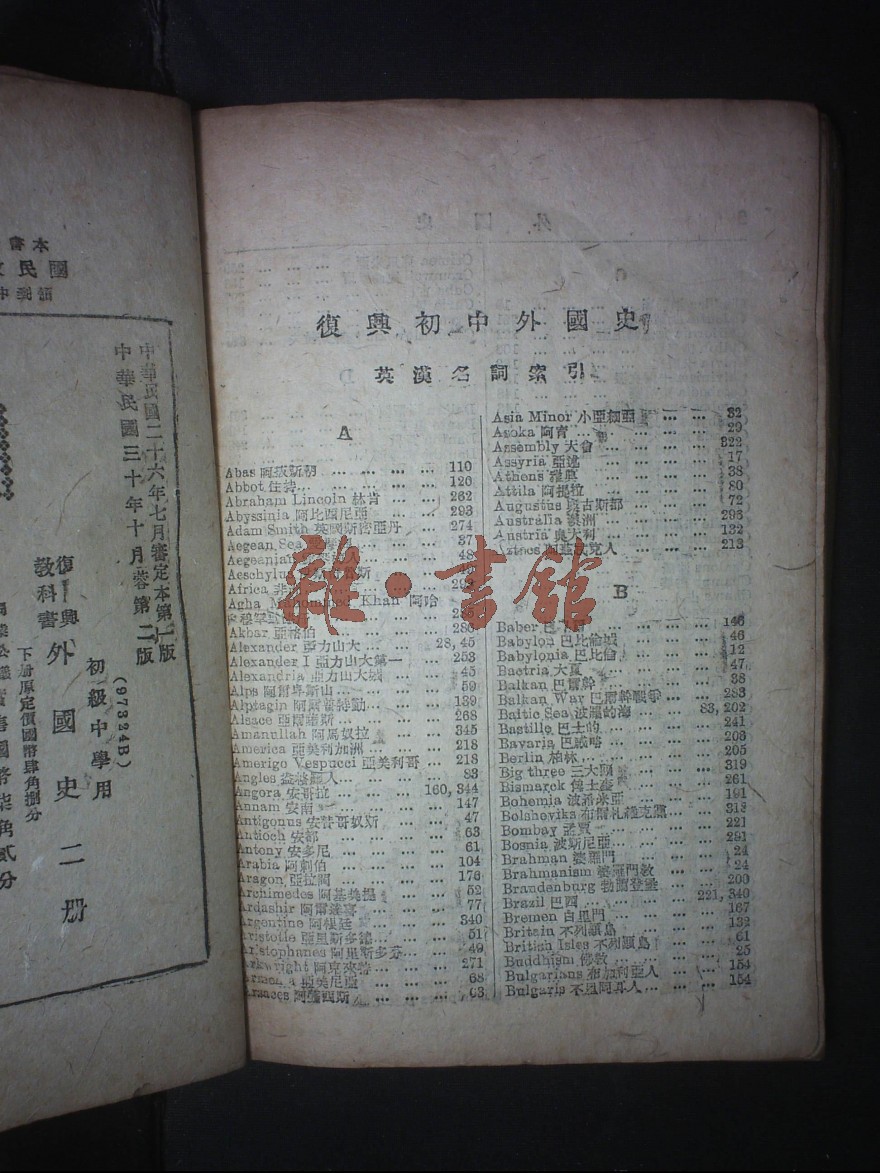 復興初中外國史
英漢名詞索引
A
Abas 阿拔斯朝 … … … … 110
Abbot 住持… … … … … 120
Abraham Lincoln 林肯 … … … 262
Abyssinia 阿比西尼亞 … … … 293
Adam Smith 英國斯密亞丹 … … 274
Aegean Sea
Aegeenian 48
Aeschylus
Africa
Agha Mahommed Khan 阿哈
Akbar 亞格伯
Alexander 亞力山大… … … 28, 45
Alexander I 亞力山大第一 … … 253
Alexandria 亞力山大城 … … … 45
Alps 阿爾卑斯山… … … … 59
Alptagin 139
Alsace 亞爾薩斯… … … … 268
Amanullah 阿馬奴拉 … … … 345
America 亞美利加洲 … … … … 218
Amerigo Vespucci 亞美利哥 … … 218
Angles 83
Angora 安哥拉 … … … … 160, 344
Annam 安南… … … … … 147
Antigonus 安替哥奴斯 … … … 47
Antioch 安都 … … … … … 63
Antony 安多尼 … … … … … 61
Arabia 阿剌伯 … … … … … 104
Aragon 亞拉岡 … … … … … 176
Archimedes 阿基美提 … … … … 52
Ardashir 77
Argentine 阿根廷 … … … … 340
Aristotle 亞里斯多德… … … … 51
Aristophanes 阿里斯多芬… … … 49
Arkwright 阿克來特… … … … 271
亞美尼亞 … … … … 68
63
Asia Minor 小亞細亞 … … … 32
Asoka 阿育 … … … … 29
Assembly 大會 … … … … 322
Assyria 亞述 … … … … 17
Athens 雅典 … … … … 38
Attila 阿提拉 … … … … 80
Augustus 奧古斯都 … … … 72
Australia 澳洲 … … … … 296
Austria 奧大利 … … … … 132
Aztecs 213
B
Baber 146
Babylon 巴比倫城 … … … 46
Babylonia 巴比倫 … … … 12
Bactria 大夏 … … … … 47
Balkan 巴爾幹 … … … … 38
Balkan War 巴爾幹戰爭 … … … 283
Baltic Sea 波羅的海 … … … 83, 202
Bastille 巴士的 … … … … 241
Bavaria 203
Berlin 柏林 … … … … … 205
Big three 三大頭 … … … … 319
Bismarck 俾士麥 … … … … 261
Bohemia 波希米亞 … … … … 191
Bolsheviks 318
Bombay 孟買 … … … … … 221
Bosnia 波斯尼亞… … … … 291
Brahman 婆羅門 … … … … 24
Brahmanism 婆羅門教 … … … 24
Brandenburg 勃蘭登堡 … … … 200
Brazil 巴西 … … … … 221, 340
Bremen 白里門 … … … … 167
Britain 不列顛島 … … … … 132
British Isles 不列顛島 … … … 61
Buddhism 佛教 … … … … 25
Bulgarians 布加利亞人 … … … 154
Bulgaria 154
中華民國二十六年七月審定本第一版
中華民國三十年十月蓉第二版
(97324B)
初級中學用
復興教科書 外國史 二册
下册原定價國幣肆角捌分
雜·書館